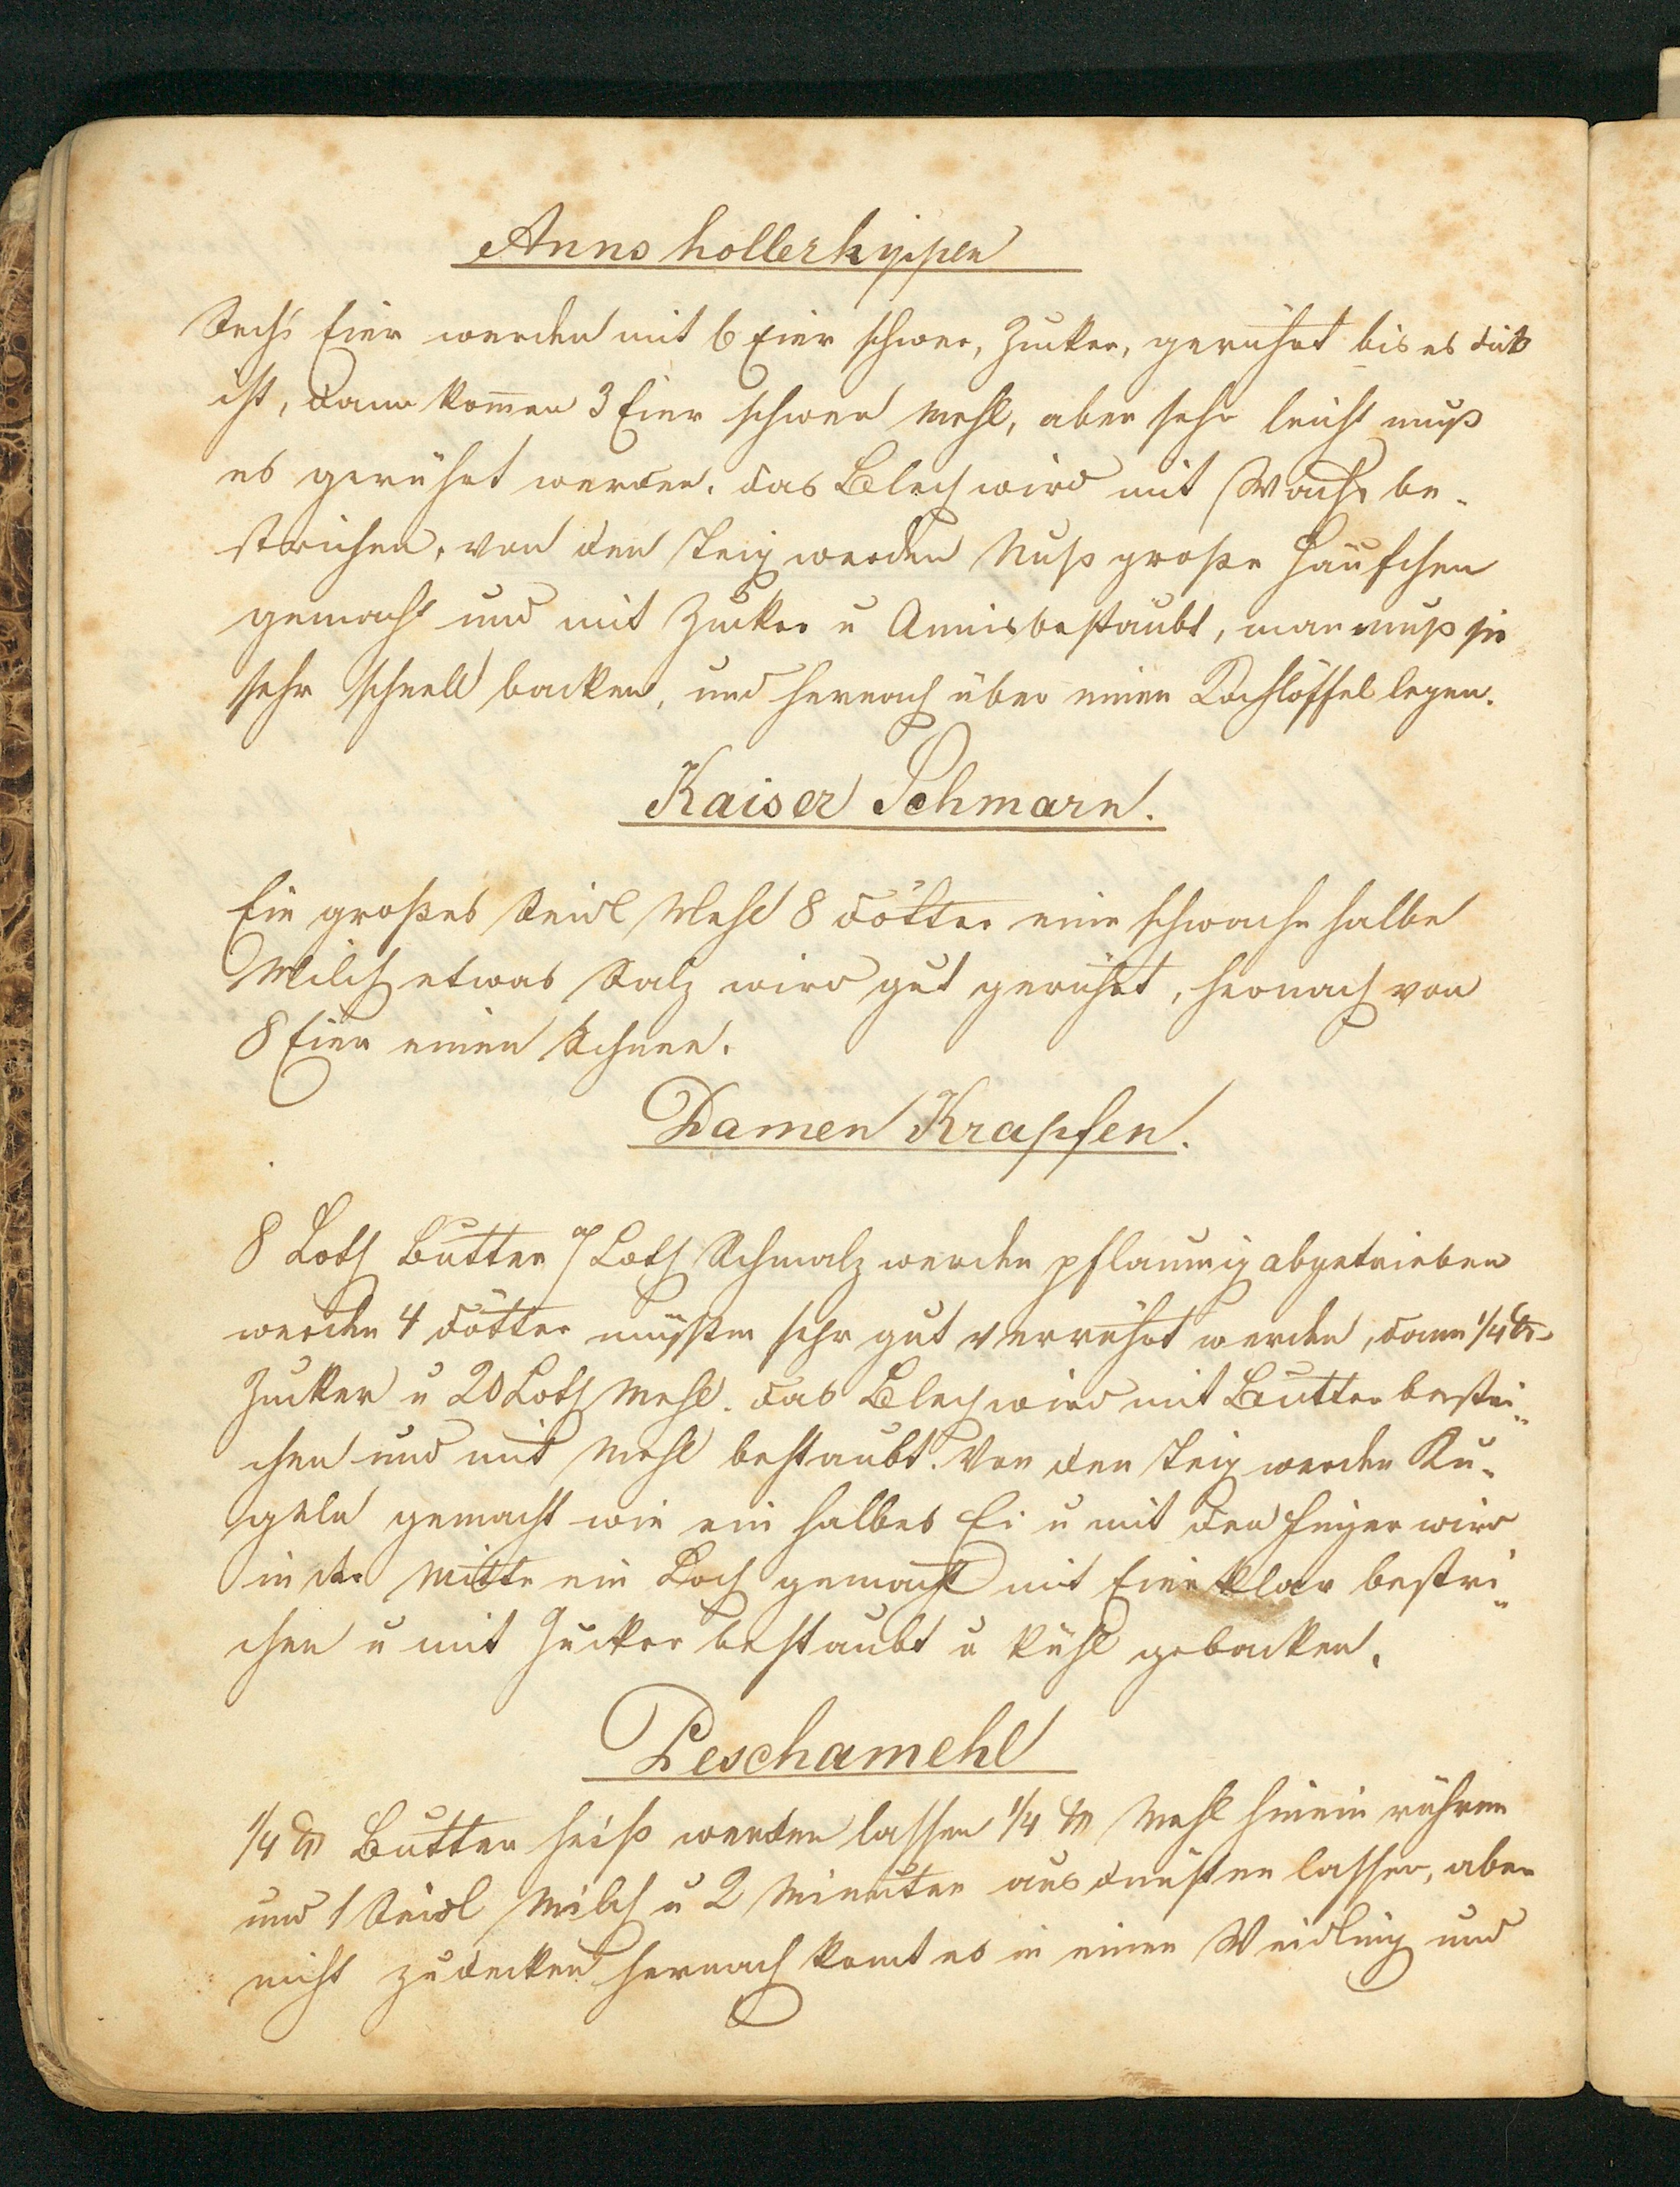 Annshollerhyppen
Sechs Eier werden mit 6 Eier schwer, Zucker, gerührt bis es dick
ist, dann kom̄en 3 Eier schwer Mehl, aber sehr leicht muß
es gerührt werden. das Blech wird mit Wachs be-
strichen, von den Teig werden Nuß große Häufchen
gemacht und mit Zucker u Annis bestaubt, man muß sie
sehr schnell backen, und hernach über einen Kochlöffel legen.
Kaiser Schmarn.
Ein großes Seidl Mehl 8 Dötter eine schwache halbe
Milch etwas Salz wird gut gerührt, hernach von
8 Eier einen Schnee.
Damen Krapfen.
8 Loth Butter 7 Loth Schmalz werden pflaumig abgetrieben
werden 4 Dötter müssen sehr gut verrührt werden, dann 1/4 ℔
Zucker u 20 Loth Mehl. das Blech wird mit Butter bestri„
chen und mit Mehl bestaubt. Von den Teig werden Ku-
geln gemacht wie ein halbes Ei u mit den Finger wird
in der Mitte ein Loch gemacht mit Eierklar bestri„
chen u mit Zucker bestaubt u kühl gebacken.
Peschamehl
1/4 ℔ Butter heiß werden lassen 1/4 ℔ Mehl hinein rühren
und 1 Seidl Milch u 2 Minuten ausdünsten lassen, aber
nicht zudecken hernach komt es in einen Weidling und